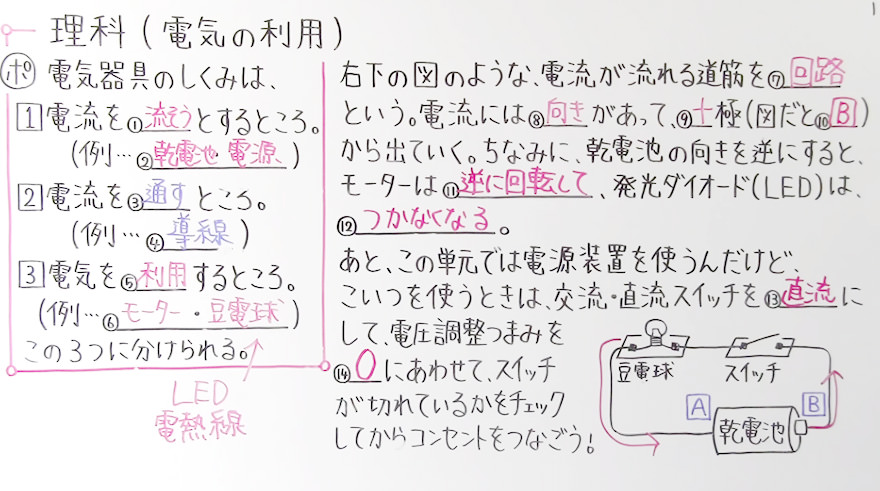 1
理科(電気の利用)
ポ 電気器具のしくみは、
1 電流を①流そうとするところ。
(例…②乾電池・電源)
2 電流を③通すところ。
(例…④導線)
3 電気を⑤利用するところ。
(例…⑥モーター・豆電球)
この3つに分けられる。
LED
電熱線
右下の図のような、電流が流れる道筋を⑦回路
という。電流には⑧向きがあって、⑨+極(図だと⑩B)
から出ていく。ちなみに、乾電池の向きを逆にすると、
モーターは⑪逆に回転して、発光ダイオード(LED)は、
⑫つかなくなる。
あと、この単元では電源装置を使うんだけど、
こいつを使うときは、交流・直流スイッチを⑬直流に
して、電圧調整つまみを
⑭0にあわせて、スイッチ
が切れているかをチェック
してからコンセントをつなごう!
豆電球 スイッチ
A B
乾電池